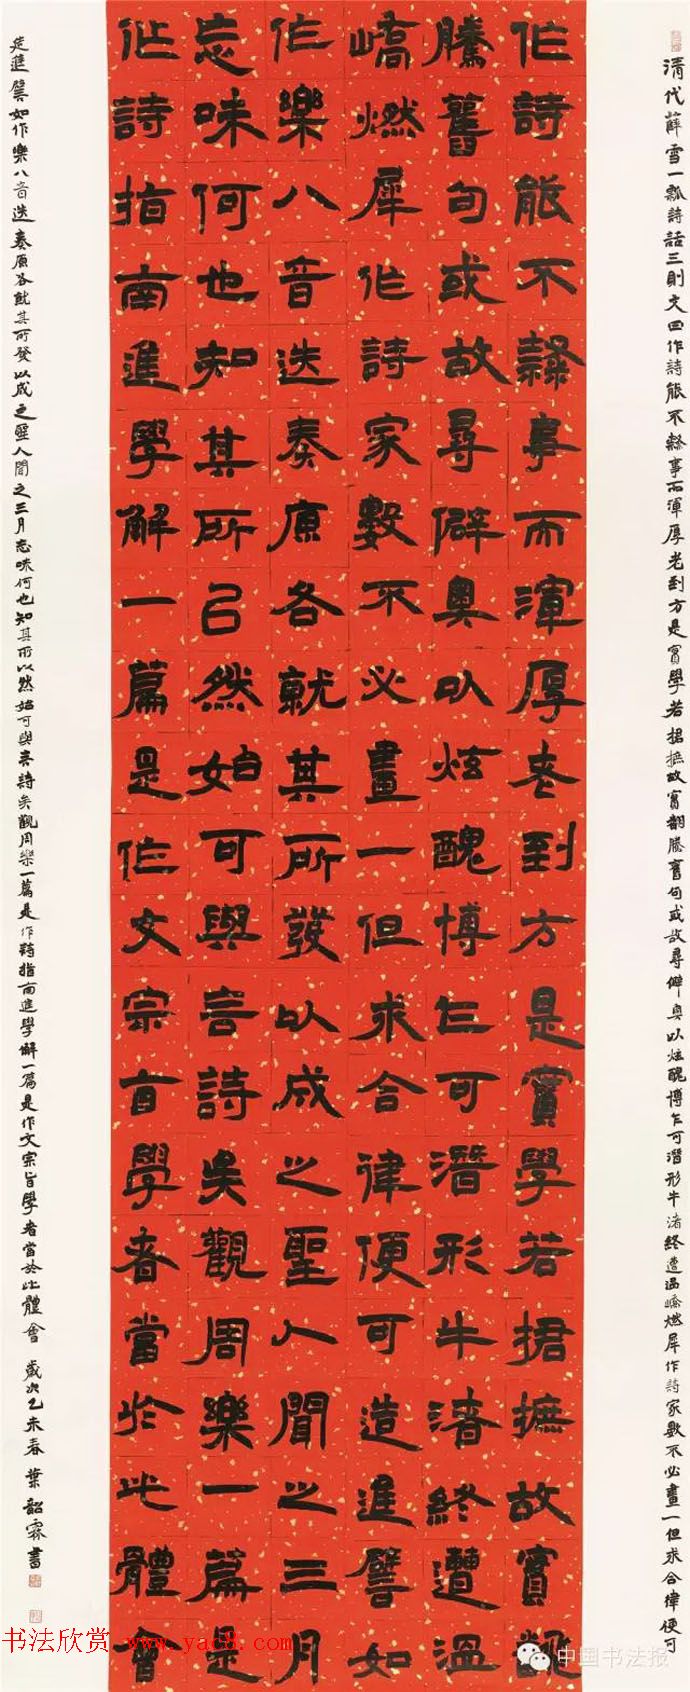 清代薛雪一瓢詩話三則文曰作詩能不隸事而渾厚老到方是實學若捃摭故實翻騰舊句或故尋僻奧以炫醜博乍可潛形牛渚終遭溫嶠燃犀作詩家數不必畫一但求合律便可
作詩能不隸事而渾厚老到方是實學若捃摭故實翻
騰舊句或故尋僻奧以炫醜博乍可潛形牛渚終遭溫
嶠燃犀作詩家數不必畫一但求合律便可造進譬如
作樂八音迭奏原各就其所發以成之聖人聞之三月
忘味何也知其所以然始可與言詩矣觀周樂一篇是
作詩指南進學解一篇是作文宗旨學者當於此體會
造進譬如作樂八音迭奏原各就其所發以成之聖人聞之三月忘味何也知其所以然始可與言詩矣觀周樂一篇是作詩指南進學解一篇是作文宗旨學者當於此體會 歲次乙未春 葉韶霖書
书法欣赏 www.yac8.com
中国书法报